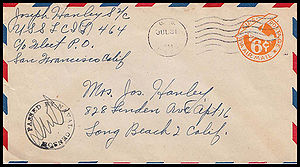 Joseph Hanley S 1/c
U.S.S. L.C.I.(L) 464
c/o Fleet P.O.
San Francisco Calif.
JUL 31
6¢
AIR MAIL
Mrs. Jos. Hanley
828 Linden Ave Apt 16
Long Beach 2 Calif.
PASSED BY NAVAL CENSOR